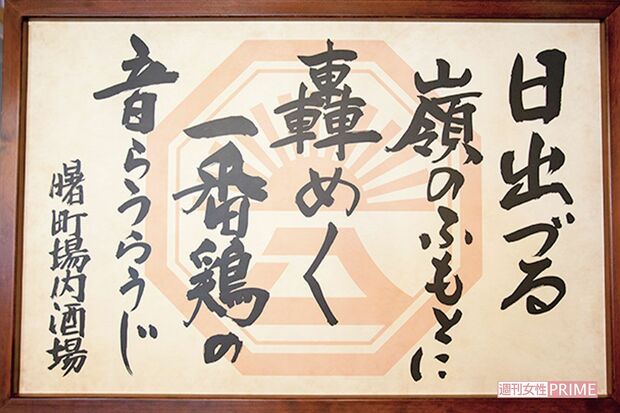 日出づる
嶺のふもとに
轟めく
一番鶏の
音らうらうじ
曙町場内酒場
週刊女性PRIME